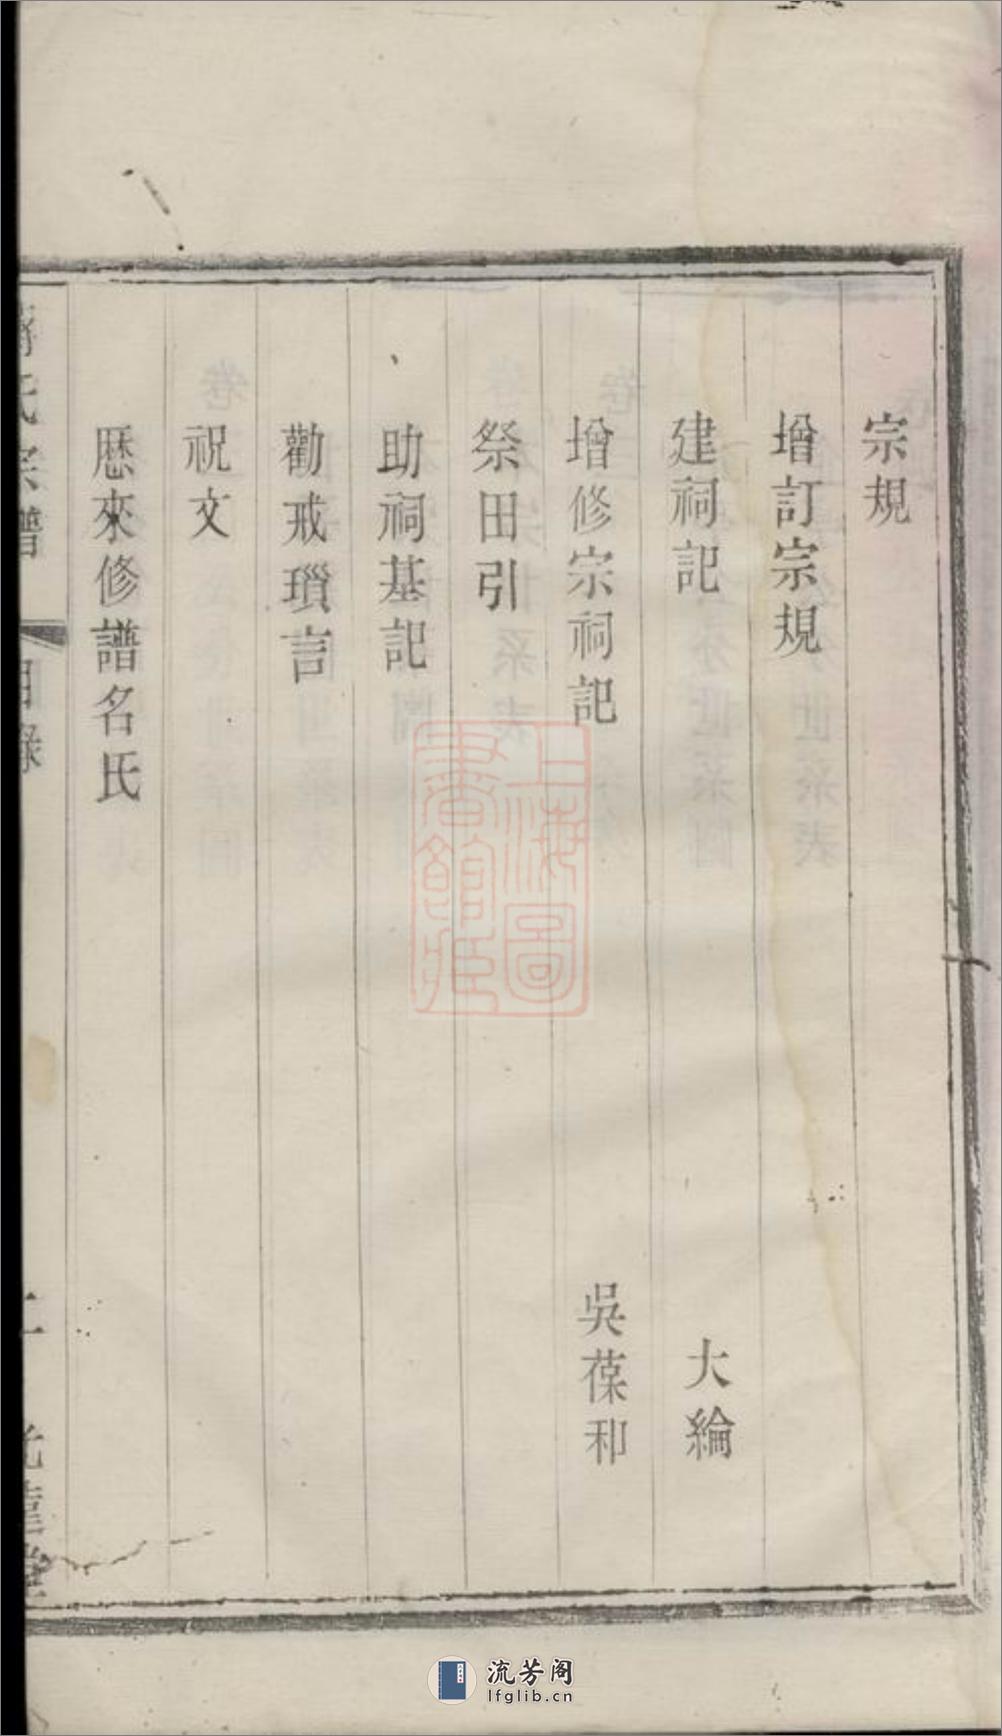 宗規
增訂宗規
建祠記 大綸
增修宗祠記 吳葆和
祭田引
助祠基記
勸戒瑣言
祝文
歷來修譜名氏
氏宗譜
目錄
二
上海圖書館藏
流芳阁
lfglib.cn